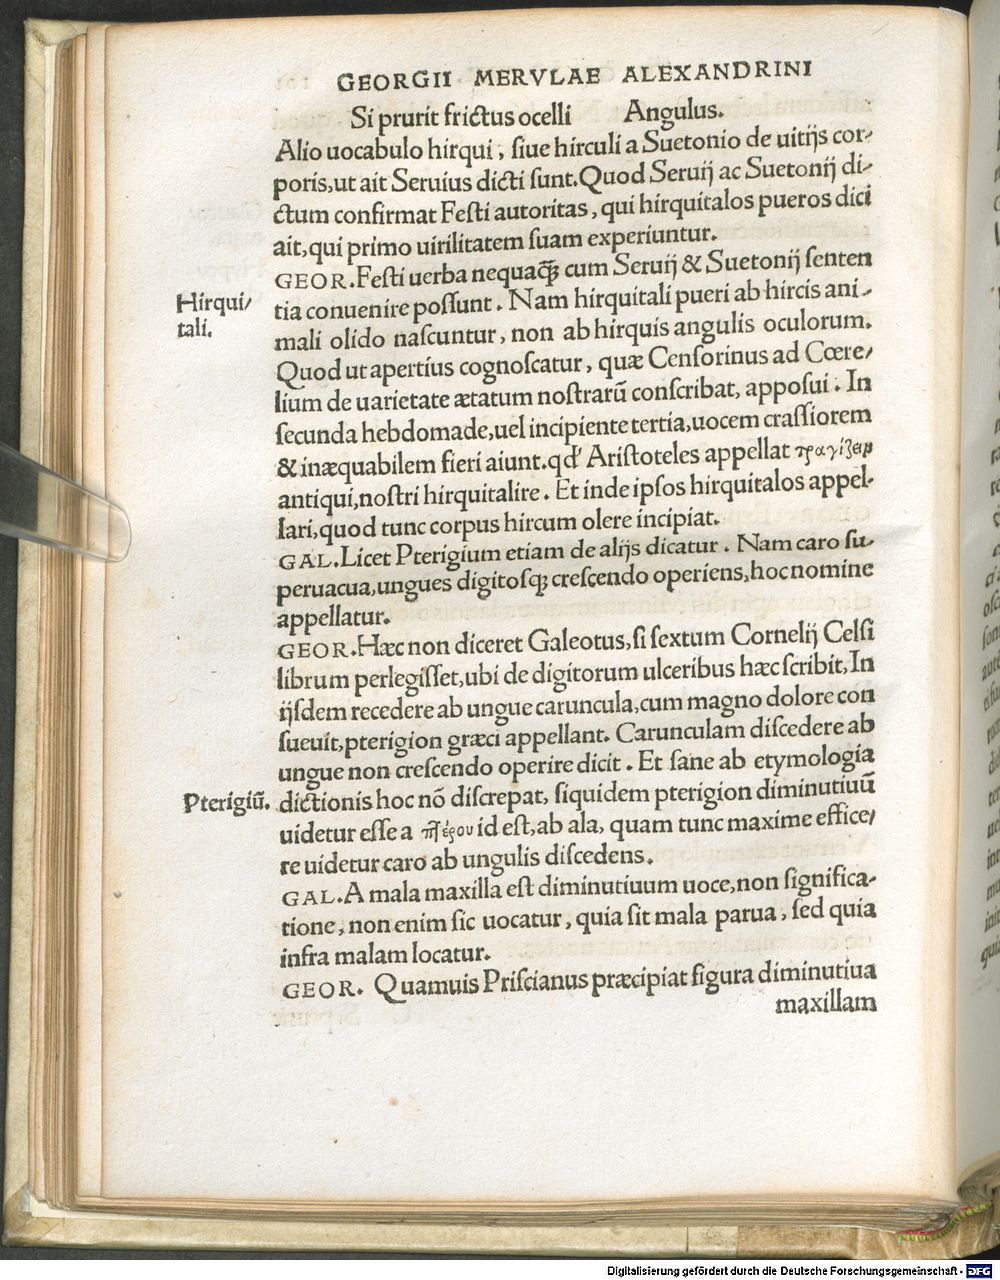 GEORGII MERVLAE ALEXANDRINI
Si prurit frictus ocelli Angulus.
Alio uocabulo hirqui, siue hirculi a Suetonio de uitijs cor-
poris, ut ait Seruius dicti sunt. Quod Seruij ac Suetonij di-
ctum confirmat Festi autoritas, qui hirquitalos pueros dici
ait, qui primo uirilitatem suam experiuntur.
GEOR. Festi uerba nequaꝗ̃ cum Seruij & Suetonij senten
Hirqui/
tali.
tia conuenire possunt. Nam hirquitali pueri ab hircis ani-
mali olido nascuntur, non ab hirquis angulis oculorum.
Quod ut apertius cognoscatur, quæ Censorinus ad Cœre/
lium de uarietate ætatum nostrarũ conscribat, apposui. In
secunda hebdomade, uel incipiente tertia, uocem crassiorem
& inæquabilem fieri aiunt. qd' Aristoteles appellat τραγίζειν
antiqui, nostri hirquitalire. Et inde ipsos hirquitalos appel-
lari, quod tunc corpus hircum olere incipiat.
GAL. Licet Pterigium etiam de alijs dicatur. Nam caro su-
peruacua, ungues digitosqꝫ crescendo operiens, hoc nomine
appellatur.
GEOR. Hæc non diceret Galeotus, si sextum Cornelij Celsi
librum perlegisset, ubi de digitorum ulceribus hæc scribit, In
ijsdem recedere ab ungue caruncula, cum magno dolore con
sueuit, pterigion græci appellant. Carunculam discedere ab
ungue non crescendo operire dicit. Et sane ab etymologia
Pterigiũ.
dictionis hoc nõ discrepat, siquidem pterigion diminutiuũ
uidetur esse a πτέρου id est, ab ala, quam tunc maxime effice/
re uidetur caro ab ungulis discedens.
GAL. A mala maxilla est diminutiuum uoce, non significa-
tione, non enim sic uocatur, quia sit mala parua, sed quia
infra malam locatur.
GEOR. Quamuis Priscianus præcipiat figura diminutiua
maxillam
Digitalisierung gefördert durch die Deutsche Forschungsgemeinschaft - DFG